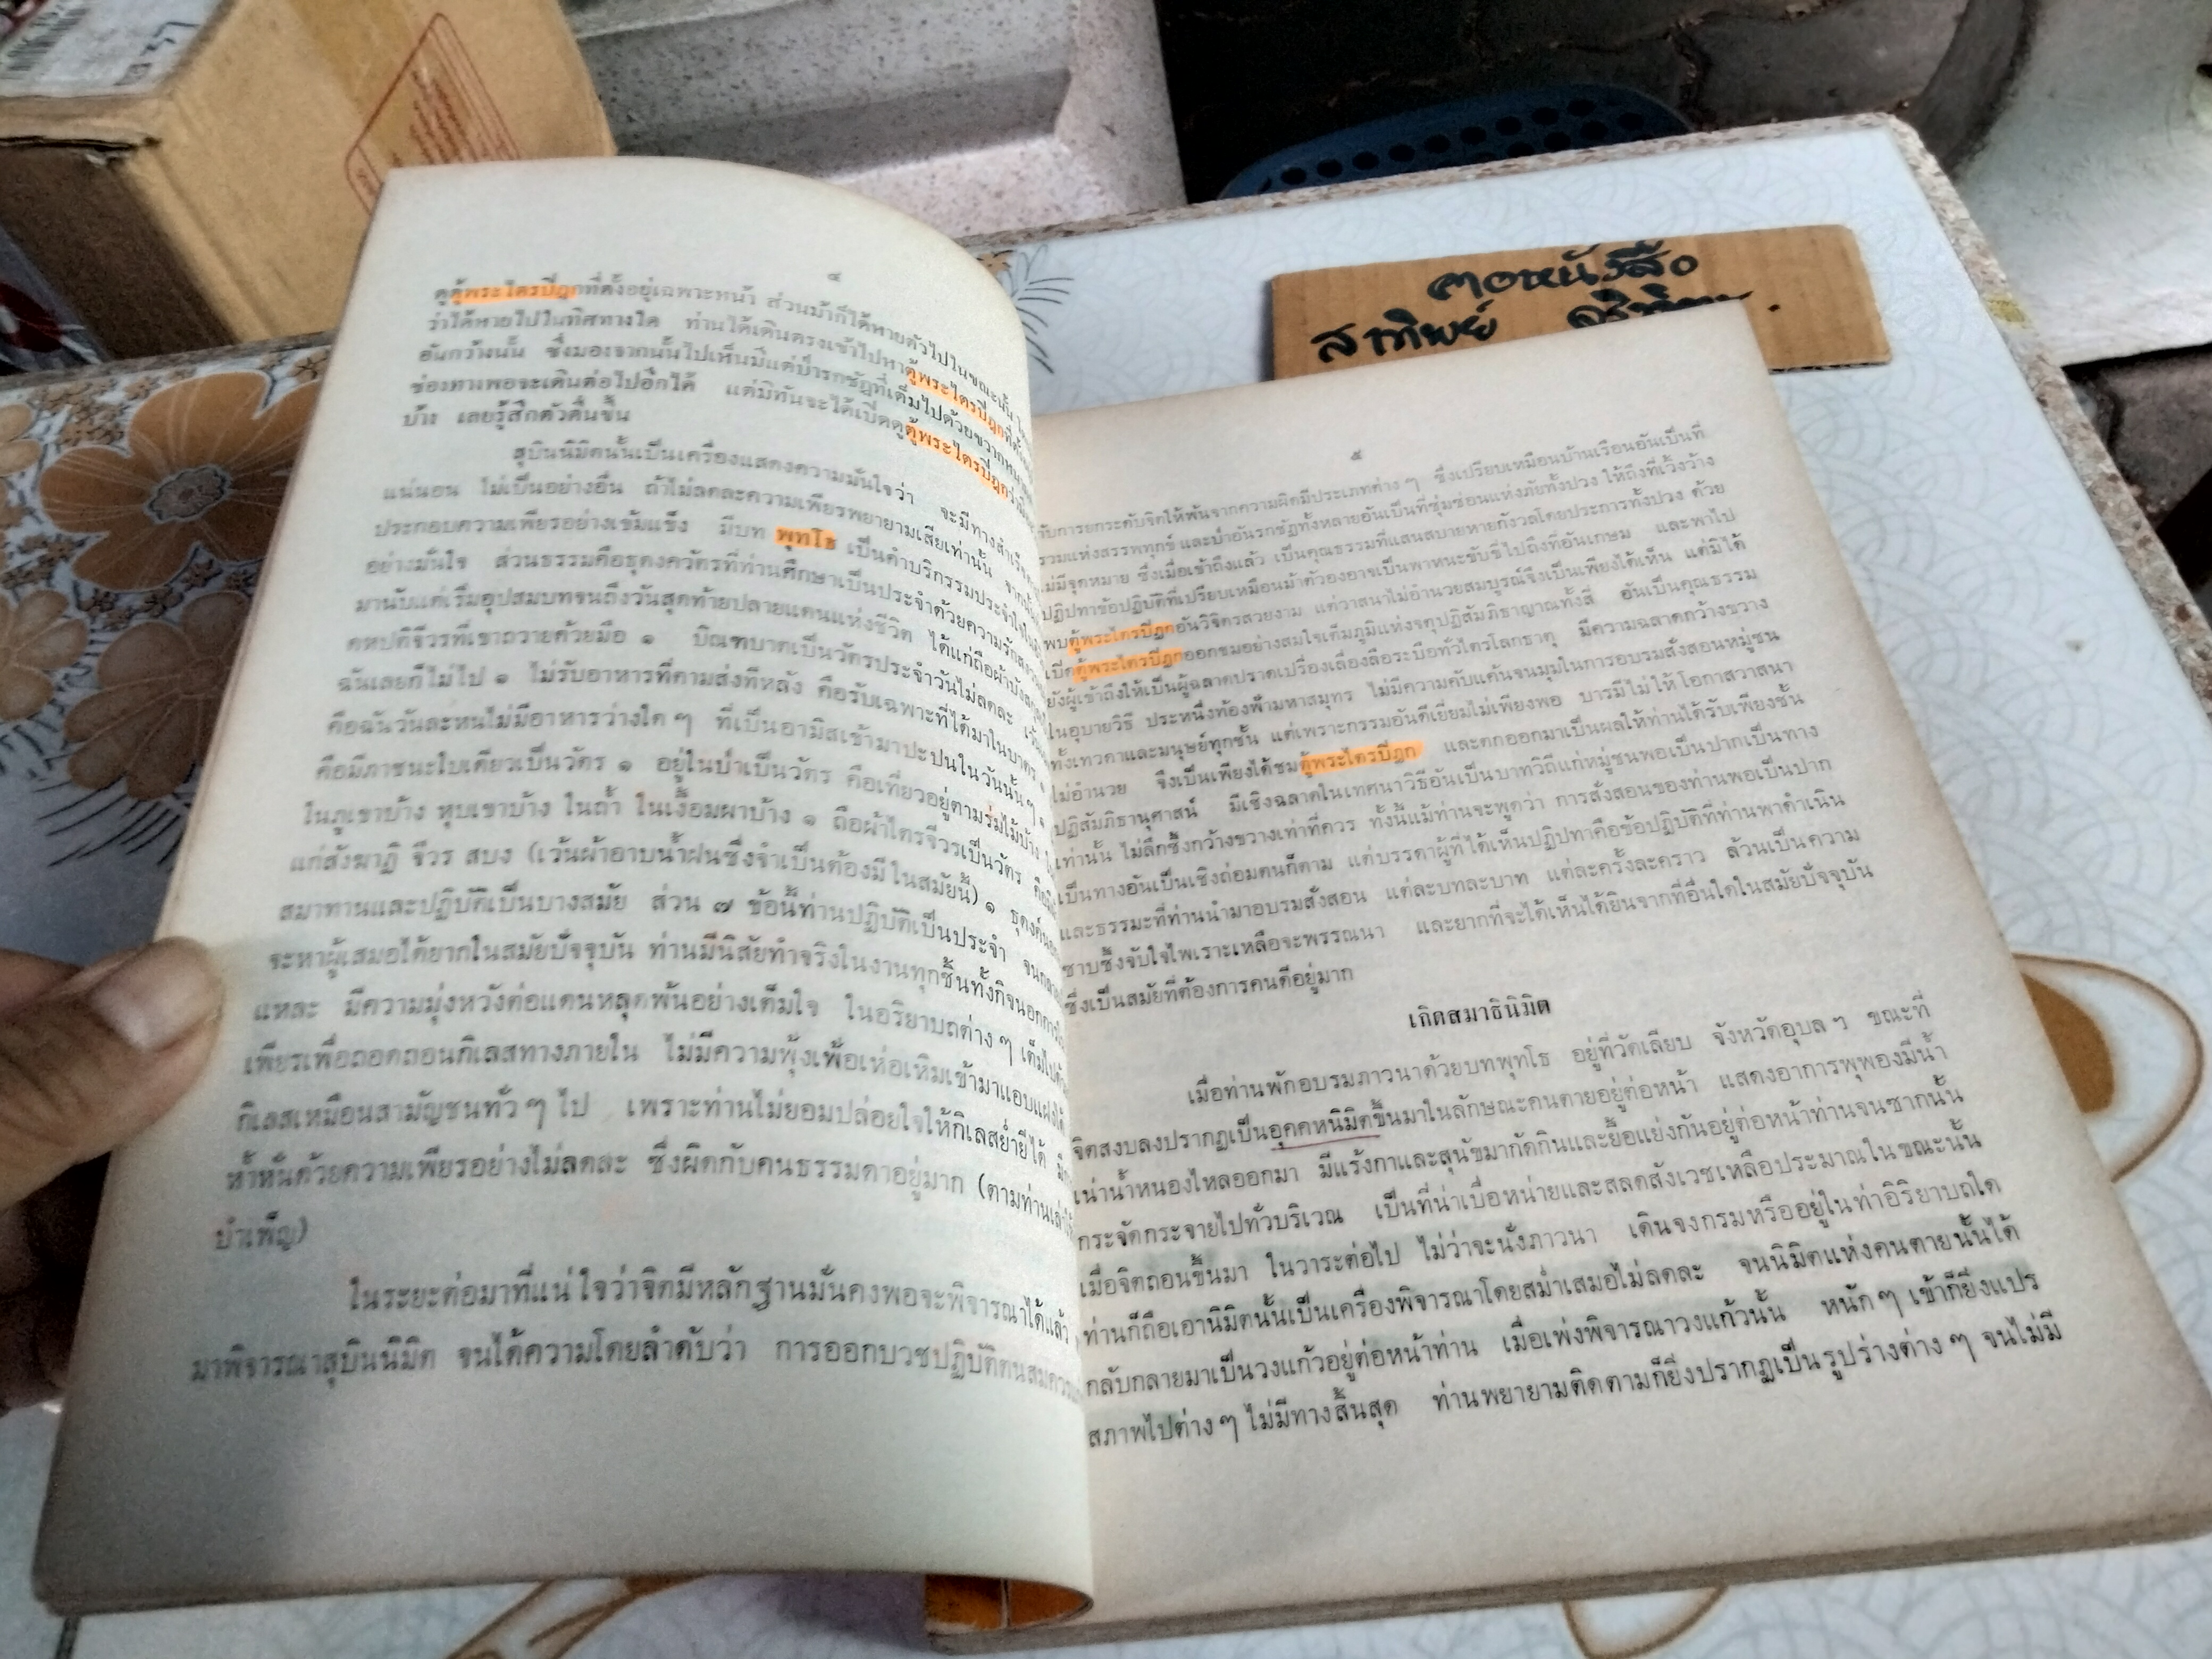 คอหนังสือ
สาทิพย์
๔
ดูตู้พระไตรปิฎกที่ตั้งอยู่เฉพาะหน้า ส่วนม้าก็ได้หายตัวไปในขณะนั้น
ว่าได้หายไปในทิศทางใด ท่านได้เดินตรงเข้าไปหาตู้พระไตรปิฎกที่ตั้ง
อันกว้างนั้น ซึ่งมองจากนั้นไปเห็นมีแต่ป่ารกชัฏที่เต็มไปด้วยขวากหนาม
ช่องทางพอจะเดินต่อไปอีกได้ แต่มิทันจะได้เปิดดูตู้พระไตรปิฎกว่ามี
บ้าง เลยรู้สึกตัวตื่นขึ้น
สุบินนิมิตนั้นเป็นเครื่องแสดงความมั่นใจว่า จะมีทางสำเร็จ
แน่นอน ไม่เป็นอย่างอื่น ถ้าไม่ลดละความเพียรพยายามเสียเท่านั้น จากนั้น
ประกอบความเพียรอย่างเข้มแข็ง มีบท พุทโธ เป็นคำบริกรรมประจำใจ
อย่างมั่นใจ ส่วนธรรมคือธุดงควัตรที่ท่านศึกษาเป็นประจำด้วยความรักสงวน
มานับแต่เริ่มอุปสมบทจนถึงวันสุดท้ายปลายแดนแห่งชีวิต ได้แก่ถือผ้าบังสุกุล
คหปติจีวรที่เขาถวายด้วยมือ ๑ บิณฑบาตเป็นวัตรประจำวันไม่ลดละ
ฉันเลยก็ไม่ไป ๑ ไม่รับอาหารที่ตามส่งทีหลัง คือรับเฉพาะที่ได้มาในบาตร ๑
คือฉันวันละหนไม่มีอาหารว่างใด ๆ ที่เป็นอามิสเข้ามาปะปนในวันนั้น ๆ ๑
คือมีภาชนะใบเดียวเป็นวัตร ๑ อยู่ในป่าเป็นวัตร คือเที่ยวอยู่ตามร่มไม้บ้าง
ในภูเขาบ้าง หุบเขาบ้าง ในถ้ำ ในเงื้อมผาบ้าง ๑ ถือผ้าไตรจีวรเป็นวัตร
แก่สังฆาฏิ จีวร สบง (เว้นผ้าอาบน้ำฝนซึ่งจำเป็นต้องมีในสมัยนี้) ๑
สมาทานและปฏิบัติเป็นบางสมัย ส่วน ๗ ข้อนี้ท่านปฏิบัติเป็นประจำ
จะหาผู้เสมอได้ยากในสมัยปัจจุบัน ท่านมีนิสัยทำจริงในงานทุกชิ้นทั้งกิจนอกการใน
แหละ มีความมุ่งหวังต่อแดนหลุดพ้นอย่างเต็มใจ ในอริยาบถต่าง ๆ เต็มไปด้วย
เพียรเพื่อถอดถอนกิเลสทางภายใน ไม่มีความฟุ้งเฟ้อเห่อเหิมเข้ามาแอบแฝงได้
กิเลสเหมือนสามัญชนทั่ว ๆ ไป เพราะท่านไม่ยอมปล่อยใจให้กิเลสย่ำยีได้
ห้ำหั่นด้วยความเพียรอย่างไม่ลดละ ซึ่งผิดกับคนธรรมดาอยู่มาก (ตามท่านเล่า
บำเพ็ญ)
ในระยะต่อมาที่แน่ใจว่าจิตมีหลักฐานมั่นคงพอจะพิจารณาได้แล้ว
มาพิจารณาสุบินนิมิต จนได้ความโดยลำดับว่า การออกบวชปฏิบัติตนสมควร
๕
กับการยกระดับจิตให้พ้นจากความผิดมีประเภทต่าง ๆ ซึ่งเปรียบเหมือนบ้านเรือนอันเป็นที่
รวมแห่งสรรพทุกข์ และป่าอันรกชัฏทั้งหลายอันเป็นที่ซุ่มซ่อนแห่งภัยทั้งปวง ให้ถึงที่เวิ้งว้าง
ไม่มีจุดหมาย ซึ่งเมื่อเข้าถึงแล้ว เป็นคุณธรรมที่แสนสบายหายกังวลโดยประการทั้งปวง ด้วย
ปฏิปทาข้อปฏิบัติที่เปรียบเหมือนม้าตัวองอาจเป็นพาหนะขับขี่ไปถึงที่อันเกษม และพาไป
พบตู้พระไตรปิฎกอันวิจิตรสวยงาม แต่วาสนาไม่อำนวยสมบูรณ์จึงเป็นเพียงได้เห็น แต่มิได้
เปิดตู้พระไตรปิฎกออกชมอย่างสมใจเต็มภูมิแห่งจตุปฏิสัมภิธาญาณทั้งสี่ อันเป็นคุณธรรม
ยังผู้เข้าถึงให้เป็นผู้ฉลาดปราดเปรื่องเลื่องลือระบือทั่วไตรโลกธาตุ มีความฉลาดกว้างขวาง
ในอุบายวิธี ประหนึ่งท้องฟ้ามหาสมุทร ไม่มีความคับแค้นจนมุมในการอบรมสั่งสอนหมู่ชน
ทั้งเทวดาและมนุษย์ทุกชั้น แต่เพราะกรรมอันดีเยี่ยมไม่เพียงพอ บารมีไม่ให้โอกาสวาสนา
ไม่อำนวย จึงเป็นเพียงได้ชมตู้พระไตรปิฎก และตกออกมาเป็นผลให้ท่านได้รับเพียงชั้น
ปฏิสัมภิธานุศาสน์ มีเชิงฉลาดในเทศนาวิธีอันเป็นบาทวิถีแก่หมู่ชนพอเป็นปากเป็นทาง
เท่านั้น ไม่ลึกซึ้งกว้างขวางเท่าที่ควร ทั้งนี้แม้ท่านจะพูดว่า การสั่งสอนของท่านพอเป็นปาก
เป็นทางอันเป็นเชิงถ่อมตนก็ตาม แต่บรรดาผู้ที่ได้เห็นปฏิปทาคือข้อปฏิบัติที่ท่านพาดำเนิน
และธรรมะที่ท่านนำมาอบรมสั่งสอน แต่ละบทละบาท แต่ละครั้งละคราว ล้วนเป็นความ
ซาบซึ้งจับใจไพเราะเหลือจะพรรณนา และยากที่จะได้เห็นได้ยินจากที่อื่นใดในสมัยปัจจุบัน
ซึ่งเป็นสมัยที่ต้องการคนดีอยู่มาก
เกิดสมาธินิมิต
เมื่อท่านพักอบรมภาวนาด้วยบทพุทโธ อยู่ที่วัดเลียบ จังหวัดอุบล ฯ ขณะที่
จิตสงบลงปรากฏเป็นอุคคหนิมิตขึ้นมาในลักษณะคนตายอยู่ต่อหน้า แสดงอาการพุพองมีน้ำ
เน่าน้ำหนองไหลออกมา มีแร้งกาและสุนัขมากัดกินและยื้อแย่งกันอยู่ต่อหน้าท่านจนซากนั้น
กระจัดกระจายไปทั่วบริเวณ เป็นที่น่าเบื่อหน่ายและสลดสังเวชเหลือประมาณในขณะนั้น
เมื่อจิตถอนขึ้นมา ในวาระต่อไป ไม่ว่าจะนั่งภาวนา เดินจงกรมหรืออยู่ในท่าอิริยาบถใด
ท่านก็ถือเอานิมิตนั้นเป็นเครื่องพิจารณาโดยสม่ำเสมอไม่ลดละ จนนิมิตแห่งคนตายนั้นได้
กลับกลายมาเป็นวงแก้วอยู่ต่อหน้าท่าน เมื่อเพ่งพิจารณาวงแก้วนั้น หนัก ๆ เข้าก็ยิ่งแปร
สภาพไปต่าง ๆ ไม่มีทางสิ้นสุด ท่านพยายามติดตามก็ยิ่งปรากฏเป็นรูปร่างต่าง ๆ จนไม่มี